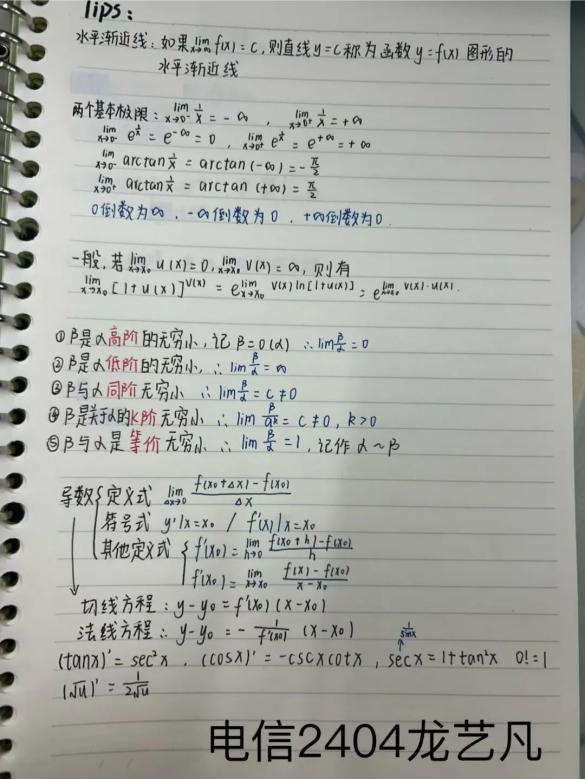 Tips：
水平渐近线：如果lim x→∞ f(x)=C，则直线y=C称为函数y=f(x)图形的
水平渐近线
两个基本极限：lim x→0⁻ 1/x = -∞，lim x→0⁺ 1/x = +∞
lim x→0⁻ e^(1/x) = e^(-∞) = 0，lim x→0⁺ e^(1/x) = e^(+∞) = +∞
lim x→0⁻ arctan 1/x = arctan(-∞) = -π/2
lim x→0⁺ arctan 1/x = arctan(+∞) = π/2
0倒数为∞，-∞倒数为0，+∞倒数为0
一般，若lim x→x₀ u(x)=0，lim x→x₀ v(x)=∞，则有
lim x→x₀ [1+u(x)]^(v(x)) = e^(lim x→x₀ v(x)ln[1+u(x)]) = e^(lim x→x₀ v(x)·u(x))
①β是α高阶的无穷小，记β=o(α) ∴lim β/α=0
②β是α低阶的无穷小，∴lim β/α=∞
③β与α同阶无穷小 ∴lim β/α=C≠0
④β是关于α的k阶无穷小 ∴lim β/α^k=C≠0，k>0
⑤β与α是等价无穷小 ∴lim β/α=1，记作α~β
导数{定义式 lim Δx→0 f(x₀+Δx)-f(x₀)/Δx
符号式 y'|x=x₀ / f'(x)|x=x₀
其他定义式{f'(x₀)=lim h→0 f(x₀+h)-f(x₀)/h
f'(x₀)=lim x→x₀ f(x)-f(x₀)/x-x₀
切线方程：y-y₀=f'(x₀)(x-x₀)
法线方程：y-y₀=-1/f'(x₀) (x-x₀)
1/sinx
(tanx)'=sec²x，(cosx)'=-cscxcotx，secx=1+tan²x 0!=1
(√u)'=1/2√u
电信2404龙艺凡